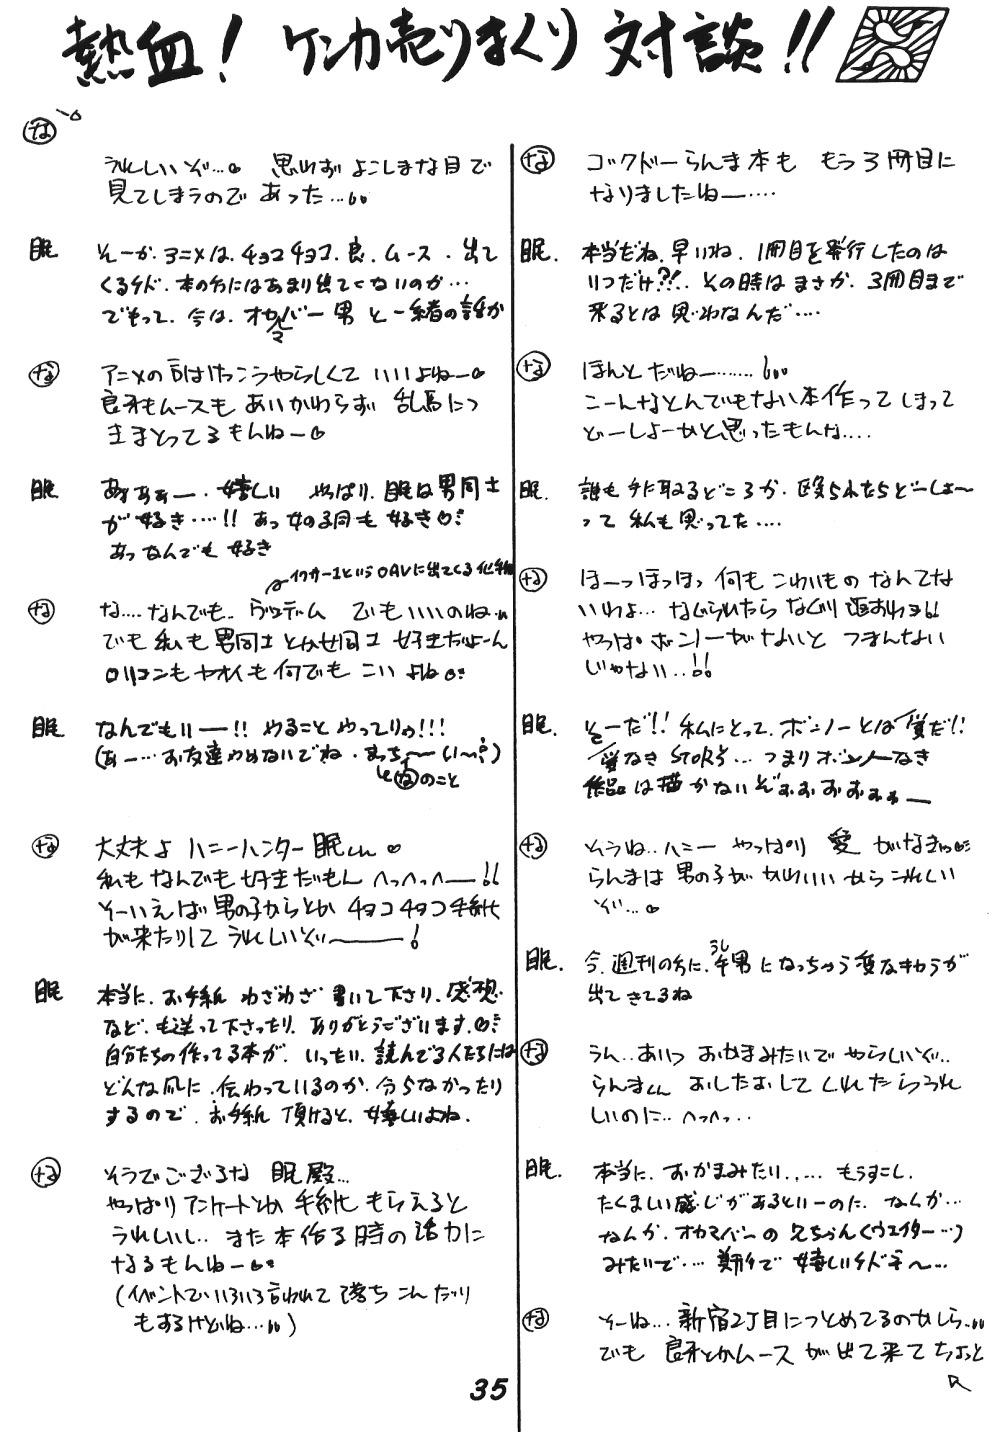 熱血! ケンカ売りまくり 対談!!
な コックドーらんま本も もう3冊目に
なりましたねー‥‥
眠. 本当だね.早いね. 1冊目を発行したのは
いつだけ??!. その時はまさか. 3冊目まで
来るとは 思わなんだ‥‥
な ほんとだねー‥‥‥
こーんなとんでもない本作ってしまって
どーしよーかと思ったもんな‥‥
眠. 誰も手に取るどころか. 殴られたらどーしよ〜
って 私も思ってた‥‥
な ほーっほっほっ 何もこわいものなんてな
いわよ… なぐられたら なぐり返おわよ!!
やっぱ ボンノーがないと つまんない
じゃない‥!!
眠. そーだ!! 私にとって、ボンノーとは愛だ!!
愛なきSTORY… つまりボンノーなき
作品は描かないぞぉぉぉぉぉー
な そうね‥ハニー やっぱり 愛 がなきゃ♡
らんまは 男の子が かわいいからうれしい
ぞ…♡
眠. 今.週刊の方に.牛男になっちゃう変なキャラが
うし
出てきてるね
な うん‥あいつ おかまみたいで やらしいぞ‥
らんまくん おしたおしてくれたらうれ
しいのに‥へっへっ‥
眠. 本当に. おかまみたい‥… もうすこし.
たくましい感じがあるといーのに. なんか…
なんか. オカマバーの兄ちゃん(ウエイター…)
みたいで‥‥ 期待で 嬉しいけどネ〜…
な そーね… 新宿2丁目につとめてるのかしら‥
でも 良牙とかムースが出て来てちょっと
な
うれしいぞ…♡ 思わず よこしまな目で
見てしまうのであった…
眠 そーか.アニメは.チョコチョコ.良.ムース.出て
くるけど.本の方にはあまり出てこないのか…
でもって. 今は. オカマバー男と一緒の話か
な アニメの方はけっこうやらしくて いいよねー♡
良牙もムースも あいかわらず 乱馬につ
きまとってるもんねー♡
眠 あぁぁぁー.嬉しい やっぱり.眠は男同士
が好き‥‥!! あっ女の子同士も好き♡
あっなんでも 好き
イクサー1というOAVに出てくる化け物
な な‥‥なんでも‥ ヴェデム でもいいのね
でも私も男同士とか女同士好きだよーん
ロリコンもヤオイも何でもこいよね♡
眠 なんでもいー!! やることやってりゃ!!!
(あー…お友達やめないでね.まっち〜い〜)
なのこと
な 大丈夫よ ハニーハンター眠くん♡
私もなんでも好きだもん へっへっへー!!
そーいえば男の子からとかチョコチョコ手紙
が来たりしてうれしいぞぃー!
眠 本当に.お手紙 わざわざ 書いて下さり.感想
など.も送って下さったり.ありがとうございます♡
自分たちの作ってる本が. いったい.読んでる人たちには
どんな風に.伝わっているのか.分らなかったり
するので.お手紙 頂けると.嬉しいよね.
な そうでござるな 眠殿…
やっぱりアンケートとか 手紙もらえると
うれしいし‥ また本作る時の活力に
なるもんねー♡
(イベントでいろいろ言われて落ちこんだり
もするけどね…)
35